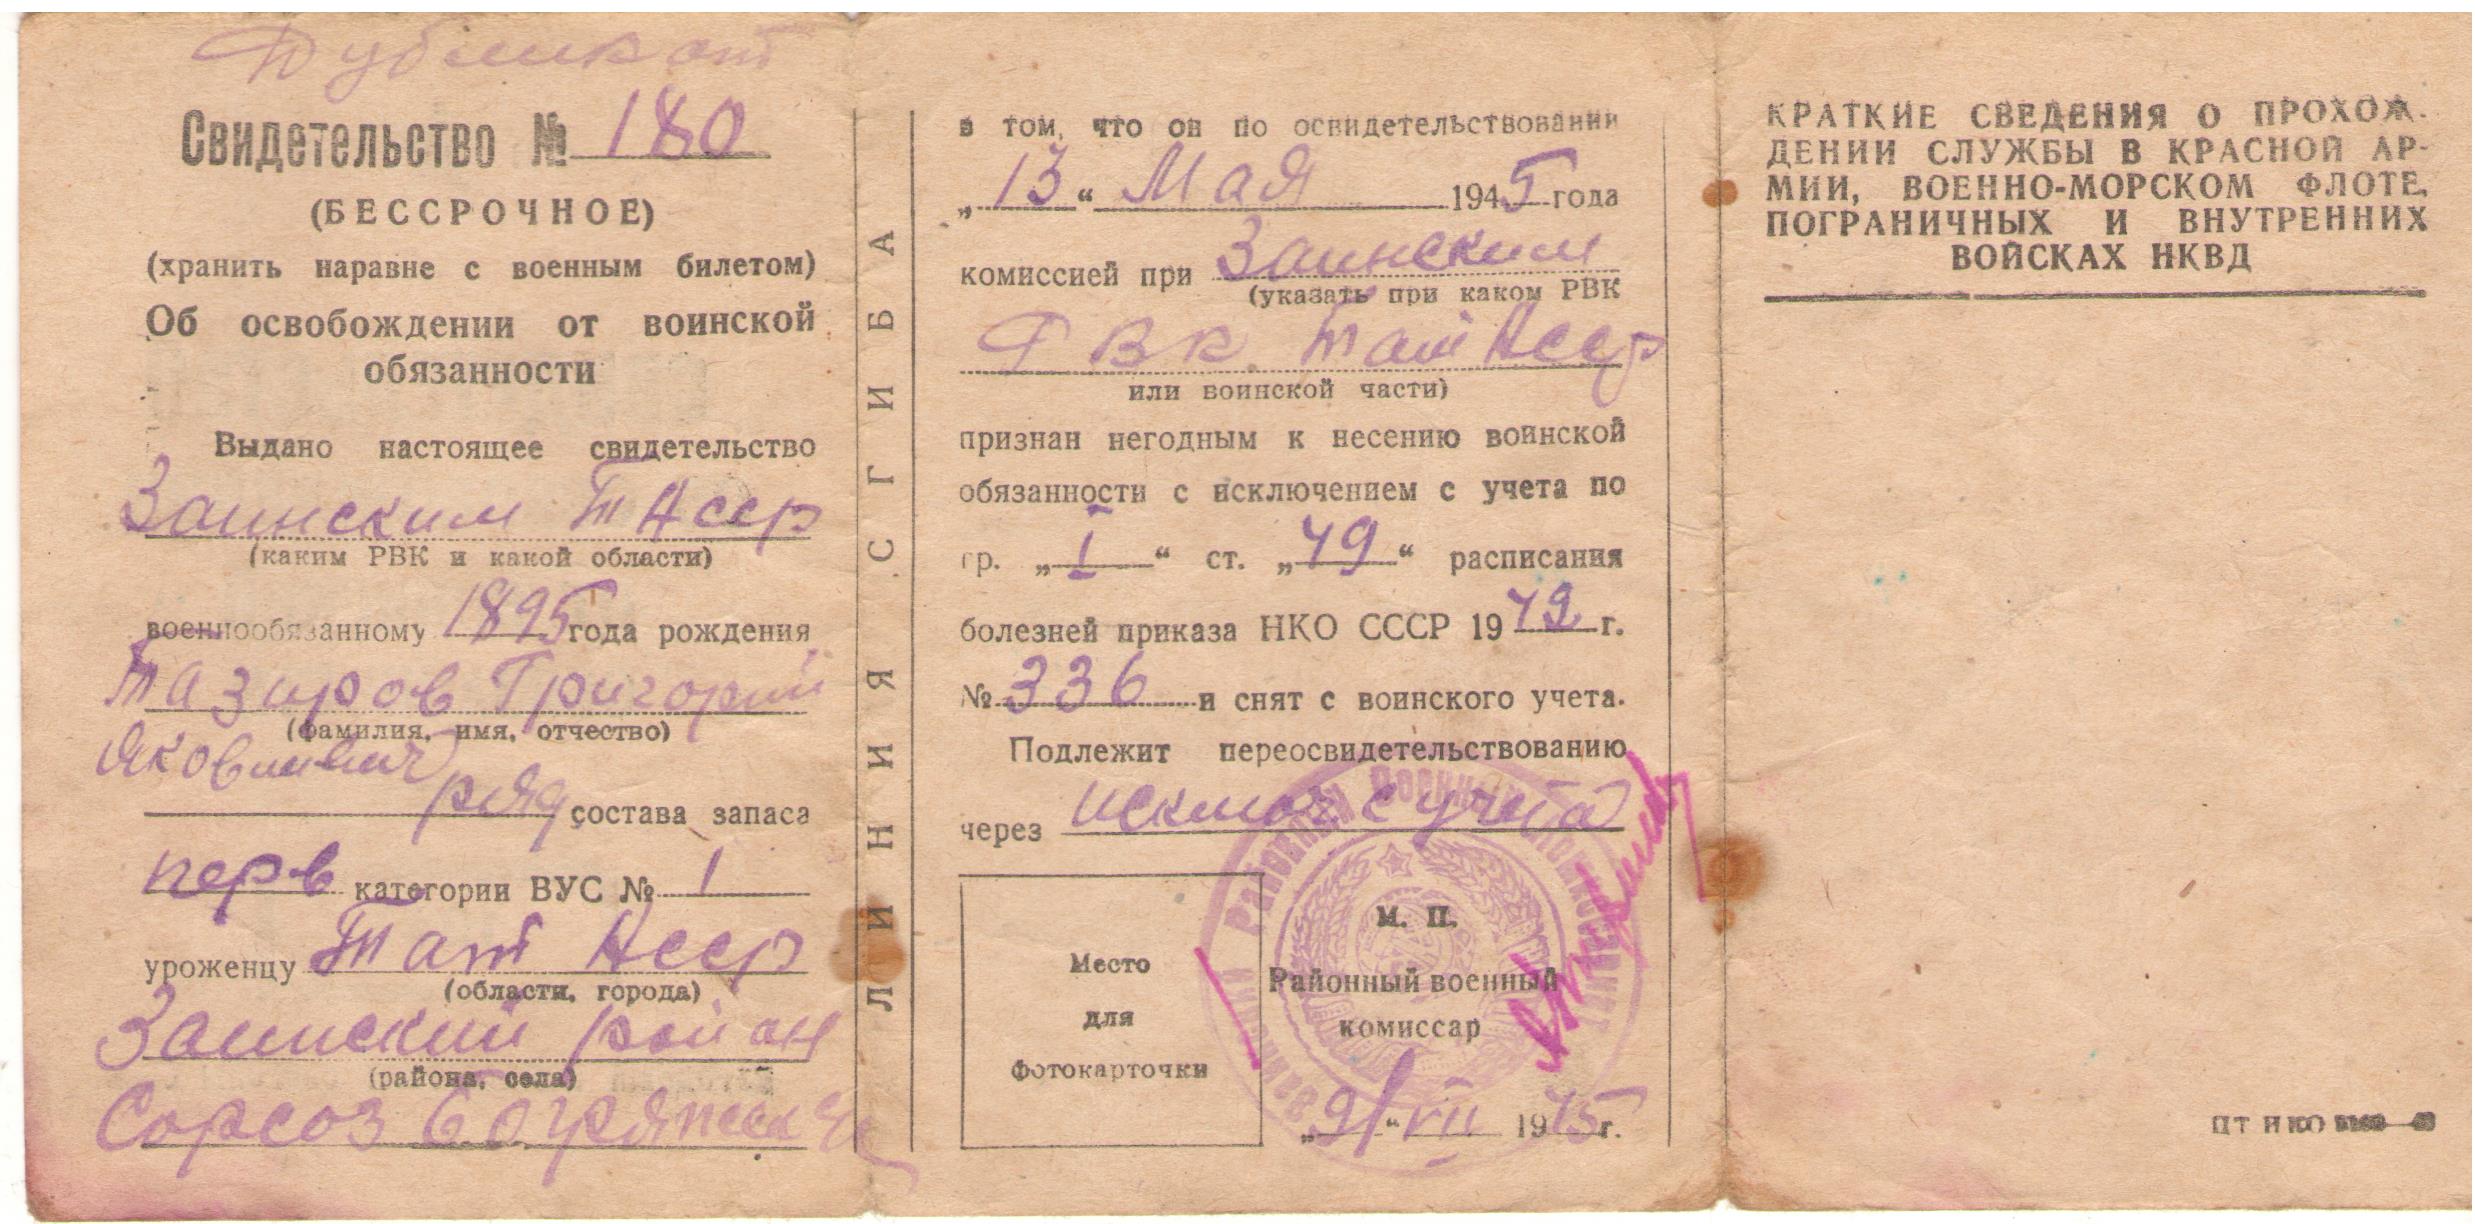 Дубликат
Свидетельство № 180
(БЕССРОЧНОЕ)
(хранить наравне с военным билетом)
Об освобождении от воинской
обязанности
Выдано настоящее свидетельство
Заинским ТАССР
(каким РВК и какой области)
военнообязанному 1895 года рождения
Тазиров Григорий
(фамилия, имя, отчество)
Яковлевич
ряд состава запаса
перв категории ВУС № 1
уроженцу Тат АССР
(области, города)
Заинский район
(района, села)
ЛИНИЯ СГИБА
в том, что он по освидетельствовании
„13“ Мая 1945 года
комиссией при Заинским
(указать при каком РВК
РВК ТатАССР
или воинской части)
признан негодным к несению воинской
обязанности с исключением с учета по
гр. „I“ ст. „49“ расписания
болезней приказа НКО СССР 1942 г.
№ 336 и снят с воинского учета.
Подлежит переосвидетельствованию
через исключ с учета
Место
для
фотокарточки
М. П.
Районный военный
комиссар
VII 1945 г.
КРАТКИЕ СВЕДЕНИЯ О ПРОХОЖ-
ДЕНИИ СЛУЖБЫ В КРАСНОЙ АР-
МИИ, ВОЕННО-МОРСКОМ ФЛОТЕ,
ПОГРАНИЧНЫХ И ВНУТРЕННИХ
ВОЙСКАХ НКВД